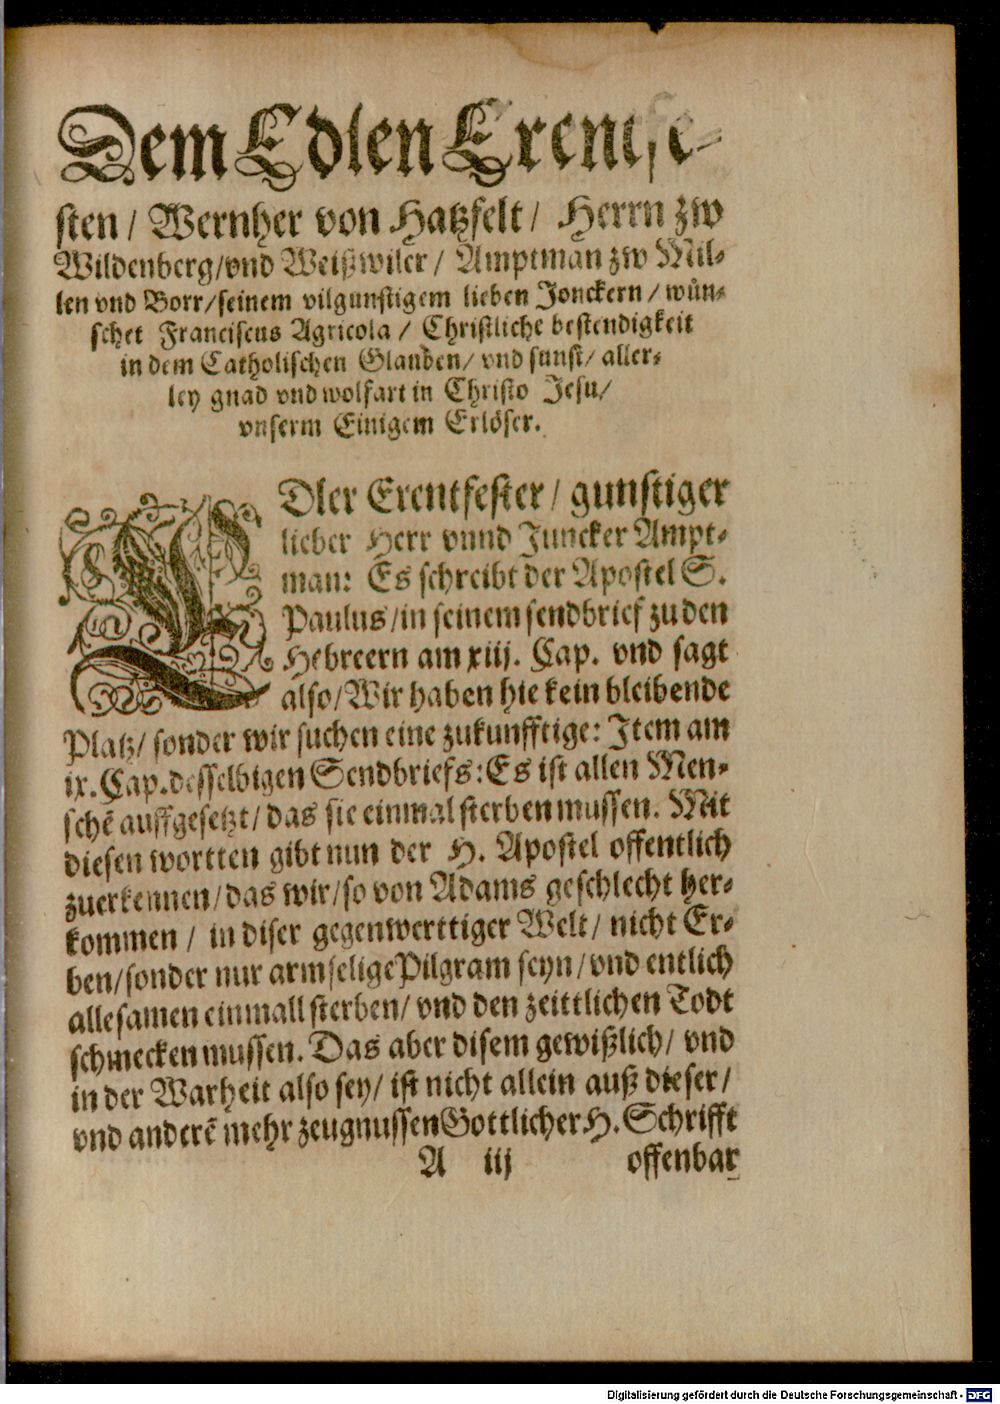 Dem Edlen Erentfe-
sten / Wernher von Hatzfelt / Herrn zw
Wildenberg/vnd Weißwiler / Amptman zw Mil-
len vnd Borr/seinem vilgunstigem lieben Jonckern / wün-
schet Franciscus Agricola / Christliche bestendigkeit
in dem Catholischen Glauben/ vnd sunst/ aller-
ley gnad vnd wolfart in Christo Jesu/
vnserm Einigem Erlöser.
EDler Erentfester / gunstiger
lieber Herr vnnd Juncker Ampt-
man: Es schreibt der Apostel S.
Paulus/in seinem sendbrief zu den
Hebreern am xiij. Cap. vnd sagt
also/Wir haben hie kein bleibende
Platz/ sonder wir suchen eine zukunfftige: Item am
ix. Cap.desselbigen Sendbriefs:Es ist allen Men-
schē auffgesetzt/das sie einmal sterben mussen. Mit
diesen wortten gibt nun der H. Apostel offentlich
zuerkennen/das wir/so von Adams geschlecht her-
kommen / in diser gegenwerttiger Welt/ nicht Er-
ben/sonder nur armselige Pilgram seyn/vnd entlich
allesamen einmall sterben/ vnd den zeittlichen Todt
schmecken mussen. Das aber disem gewißlich/ vnd
in der Warheit also sey/ ist nicht allein auß dieser/
vnd anderē mehr zeugnussen Gottlicher H. Schrifft
A iij offenbar
Digitalisierung gefördert durch die Deutsche Forschungsgemeinschaft - DFG